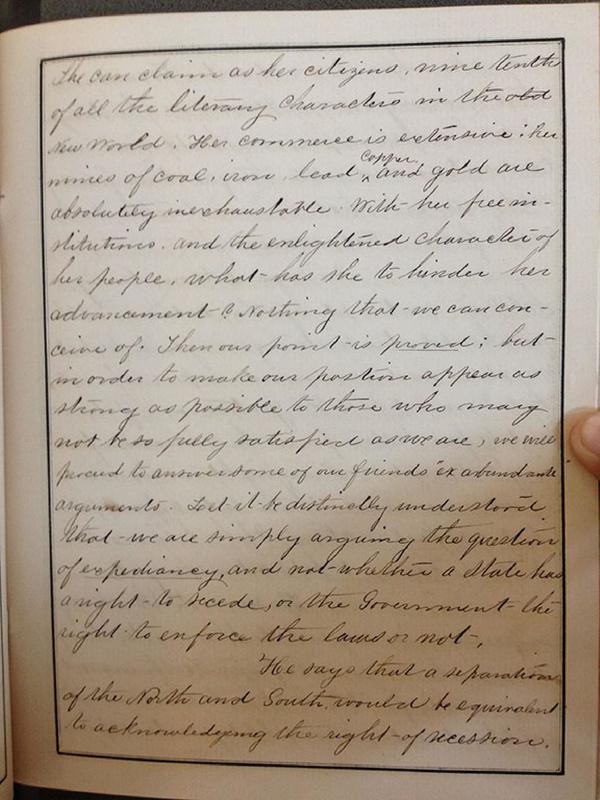 She can claim as her citizens, nine tenth
of all the literary characters in the old
New World. Her commerce is extensive; her
mines of coal, iron, lead ‸copper and gold are
absolutely inexhaustable. With her free in-
stitutions, and the enlightened character of
her people, what has she to hinder her
advancement? Nothing that we can con-
ceive of. Then our point is proved; but
in order to make our postion appear as
strong as possible to those who may
not be so fully satisfied as we are, we will
proceed to answer some of our friends "ex abundante"
arguments. Let it be distinctly understood
that we are simply arguing the question
of expediancy, and not whether a State has
a right to secede, or the Government the
right to enforce the laws or not.
He says that a separation
of the North and South, would be equivalent
to acknowledgeing the right of secession.